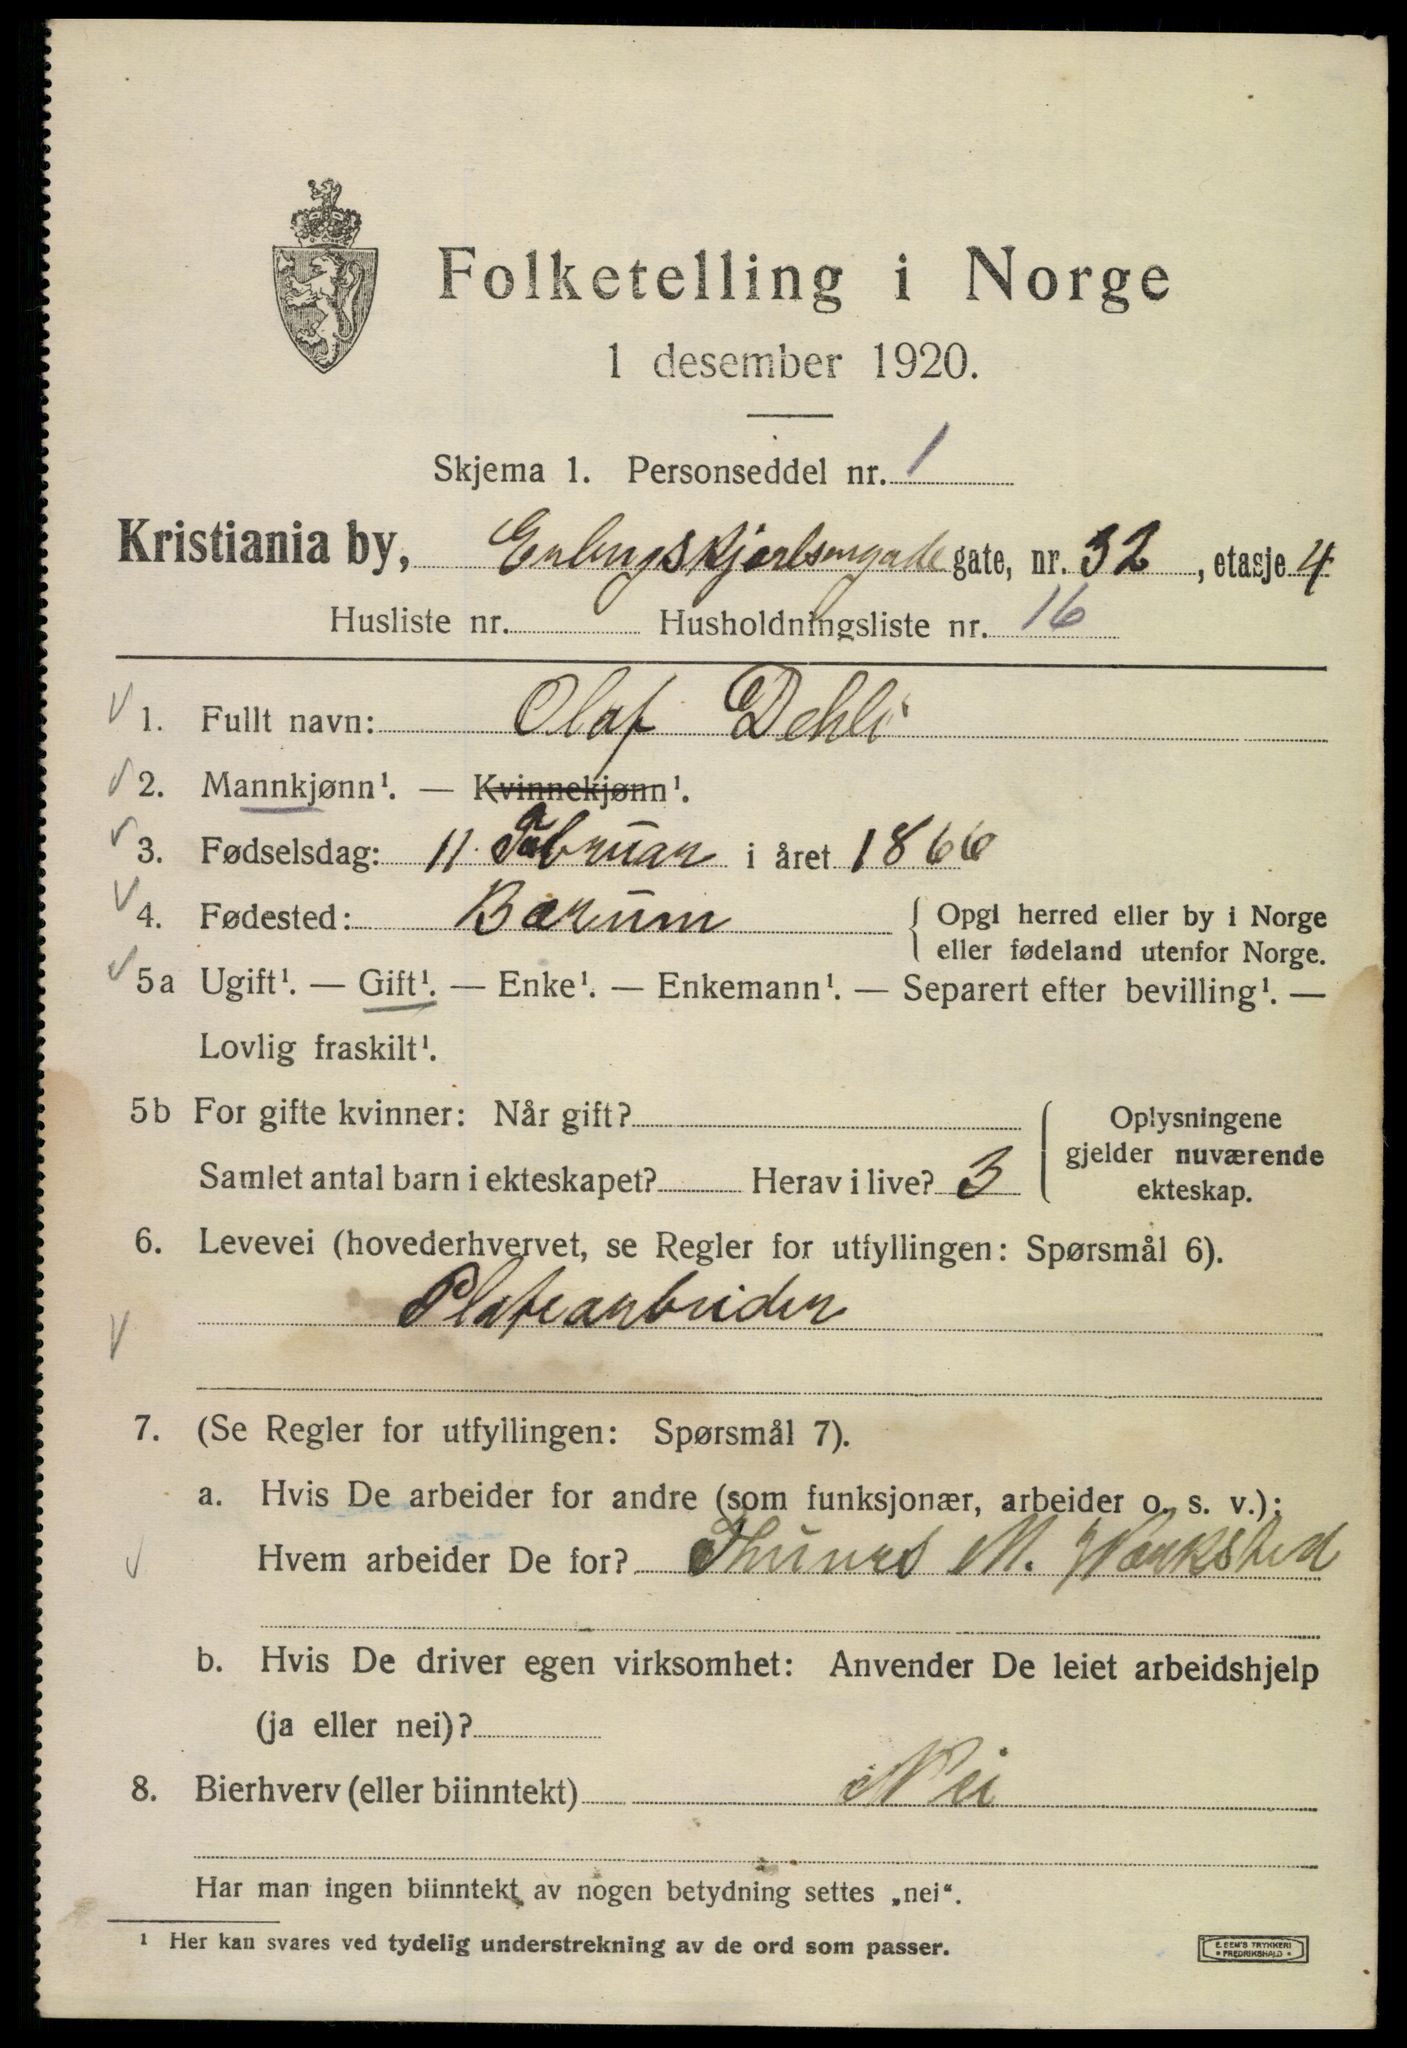 Folketelling i Norge
1 desember 1920.
Skjema 1. Personseddel nr. 1
Kristiania by, gate, nr. 32, etasje 4
Husliste nr. Husholdningsliste nr. 16
1. Fullt navn: Olaf Dehli
2. Mannkjønn¹. — Kvinnekjønn¹.
3. Fødselsdag: 11. Februar i året 1866
4. Fødested: Bærum { Opgi herred eller by i Norge
eller fødeland utenfor Norge.
5a Ugift¹. — Gift¹. — Enke¹. — Enkemann¹. — Separert efter bevilling¹. —
Lovlig fraskilt¹.
5b For gifte kvinner: Når gift? { Oplysningene
gjelder nuværende
Samlet antal barn i ekteskapet? Herav i live? 3 ekteskap.
6. Levevei (hovederhvervet, se Regler for utfyllingen: Spørsmål 6).
Platearbeider
7. (Se Regler for utfyllingen: Spørsmål 7).
a. Hvis De arbeider for andre (som funksjonær, arbeider o. s. v.):
Hvem arbeider De for? Thunes M. Værksted
b. Hvis De driver egen virksomhet: Anvender De leiet arbeidshjelp
(ja eller nei)?
8. Bierhverv (eller biinntekt) Nei
Har man ingen biinntekt av nogen betydning settes „nei“.
¹ Her kan svares ved tydelig understrekning av de ord som passer.
E. SEM'S TRYKKERI
• FREDRIKSHALD •